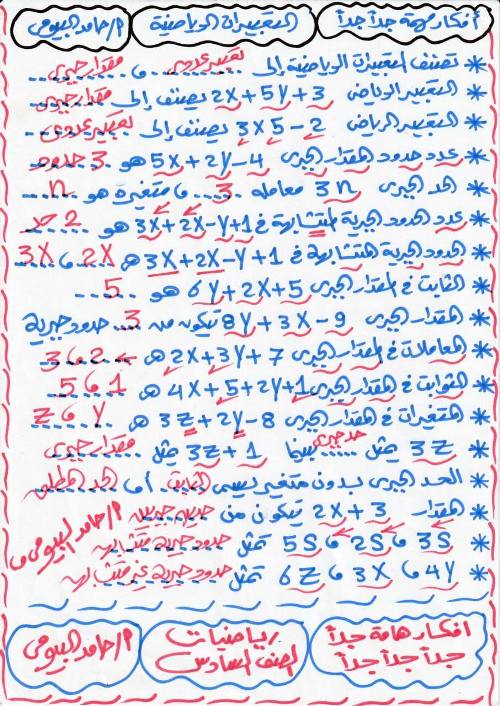 أفكار مهمة جداً جداً
التعبيرات الرياضية
م/حامد البيومى
* تصنف التعبيرات الرياضية إلى تعبير عددى و مقدار جبرى
* التعبير الرياضى 2X+5Y+3 يصنف إلى مقدار جبرى
* التعبير الرياضى 3X5-2 يصنف إلى تعبير عددى
* عدد حدود المقدار الجبرى 5X+2Y-4 هو 3 حدود
* الحد الجبرى 3n معامله 3 و متغيره هو n
* عدد الحدود الجبرية المتشابهة فى 3X+2X-Y+1 هو 2 حد
* الحدود الجبرية المتشابهة فى 3X+2X-Y+1 هى 2X و 3X
* الثابت فى المقدار الجبرى 6Y+2X+5 هو 5
* المقدار الجبرى 8Y+3X-9 يتكون من 3 حدود جبرية
* المعاملات فى المقدار الجبرى 2X+3Y+7 هى 2 و 3
* الثوابت فى المقدار الجبرى 4X+5+2Y+1 هى 1 و 5
* المتغيرات فى المقدار الجبرى 3Z+2Y-8 هى Y و Z
* 3Z يمثل حد جبرى بينما 3Z+1 يمثل مقدار جبرى
* الحد الجبرى بدون متغير يسمى الثابت أما الحد المطلق
* المقدار 2X+3 يتكون من حدين جبريين
* 3S و 2S و 5S تمثل حدود جبرية متشابهة
* 4Y و 3X و 6Z تمثل حدود جبرية غير متشابهة
م/حامد البيومى
افكار هامة جداً جداً جداً جداً
رياضيات
الصف السادس
م/حامد البيومى